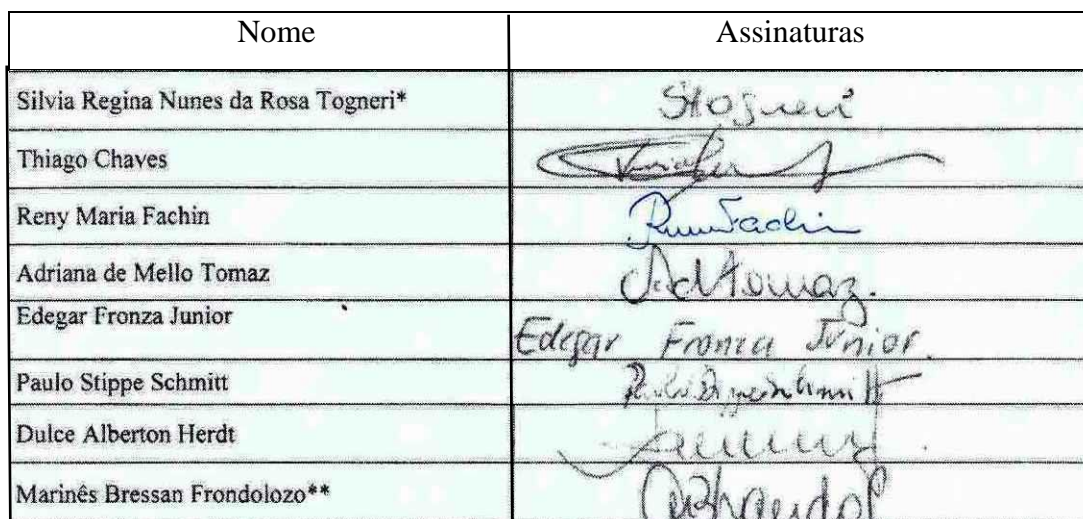 Nome Assinaturas
Silvia Regina Nunes da Rosa Togneri* Stogneri
Thiago Chaves
Reny Maria Fachin Fachin
Adriana de Mello Tomaz AdTomaz.
Edegar Fronza Junior Edegar Fronza Júnior.
Paulo Stippe Schmitt Schmitt
Dulce Alberton Herdt
Marinês Bressan Frondolozo**